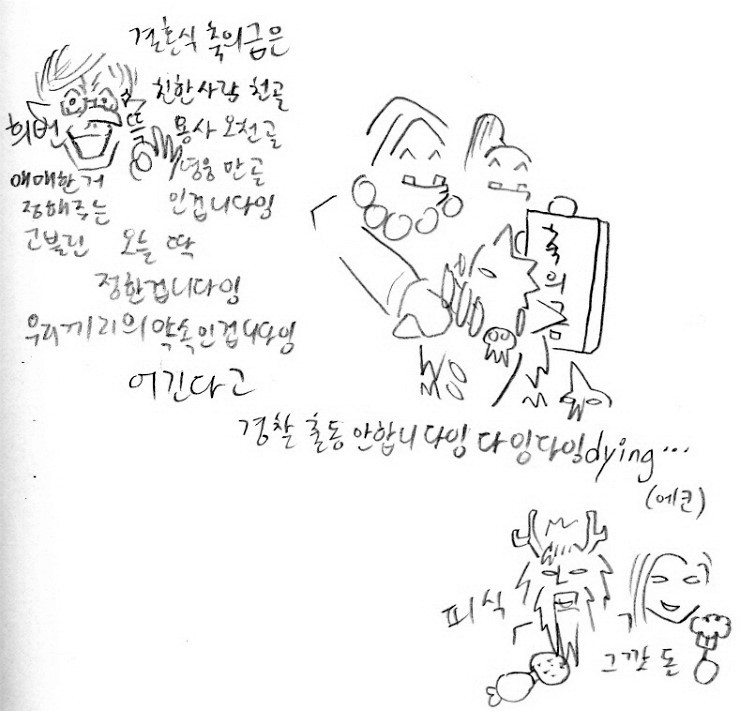 결혼식 축의금은
친한사람 천골
용사 오천골
영웅 만골
인겁니다잉
희번
뜩
애매한거
정해주는
고블린 오늘 딱
정한겁니다잉
우리끼리의 약속인겁니다잉
어긴다고
경찰 출동 안합니다잉 다잉다잉dying...
(에코)
축의금
피식
그깟 돈